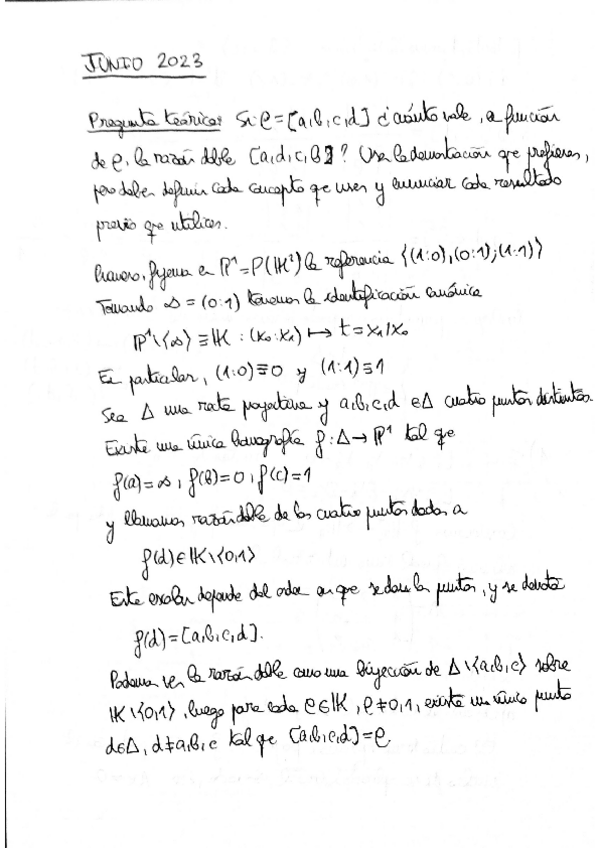 JUNIO 2023
Pregunta teórica: Si ρ=[a,b,c,d] ¿cuánto vale, a función
de ρ, la razón doble [a,d,c,b]? Usa la demostración que prefieras,
pero debes definir cada concepto que uses y enunciar cada resultado
previo que utilices.
Primero, fijemos en ℙ¹=P(𝕂²) la referencia {(1:0),(0:1);(1:1)}
Tomando ∞=(0:1) tenemos la identificación canónica
ℙ¹\{∞}≡𝕂:(x₀:x₁)↦t=x₁/x₀
En particular, (1:0)≡0 y (1:1)≡1
Sea Δ una recta proyectiva y a,b,c,d ∈Δ cuatro puntos distintos.
Existe una única homografía f:Δ→ℙ¹ tal que
f(a)=∞, f(b)=0, f(c)=1
y llamamos razón doble de los cuatro puntos dados a
f(d)∈𝕂\{0,1}
Este escalar depende del orden en que se dan los puntos, y se denota
f(d)=[a,b,c,d].
Podemos ver la razón doble como una biyección de Δ\{a,b,c} sobre
𝕂\{0,1}, luego para cada ρ∈𝕂, ρ≠0,1, existe un único punto
d∈Δ, d≠a,b,c tal que [a,b,c,d]=ρ